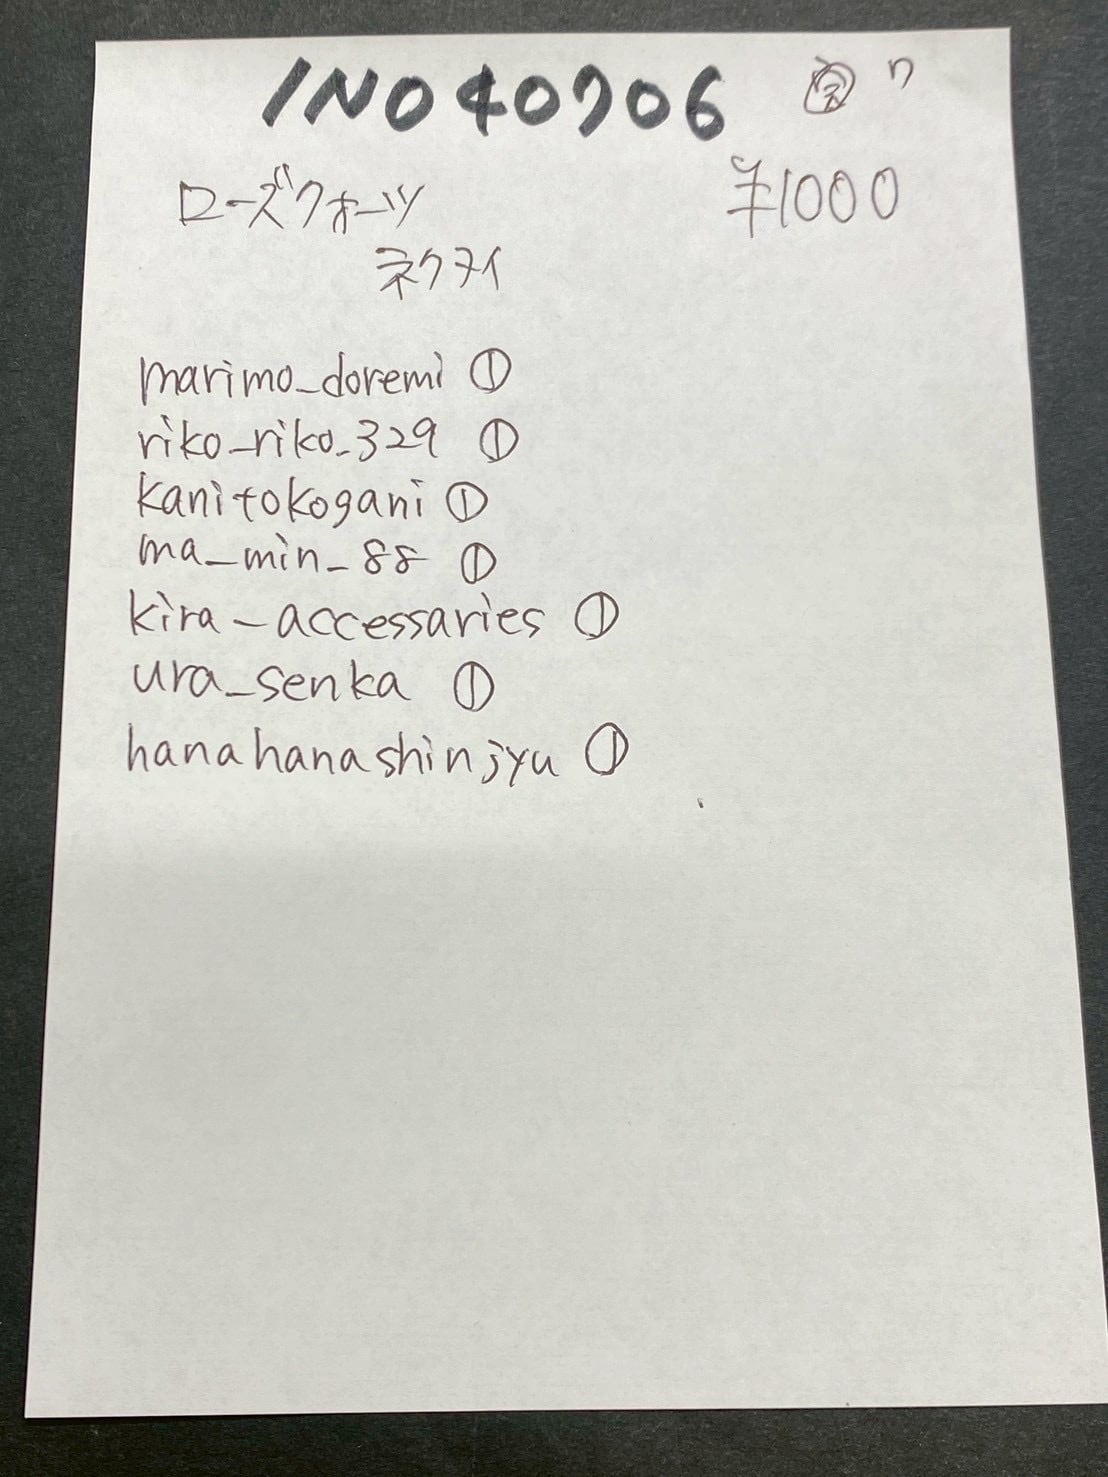 INO40706 7
ローズクォーツ ¥1000
ネクタイ
marimo_doremi ①
riko_riko_329 ①
kanitokogani ①
ma_min_88 ①
kira_accessaries ①
ura_senka ①
hanahanashinjyu ①